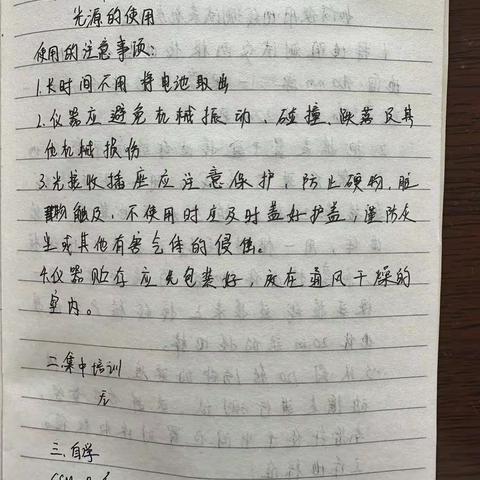 光源的使用
使用的注意事项:
1.长时间不用将电池取出
2.仪器应避免机械振动、碰撞、跌落及其
他机械损伤
3.光接收插座应注意保护,防止硬物,脏
物触及,不使用时应及时盖好护盖,谨防灰
尘或其他有害气体的侵蚀。
4.仪器贮存应先包装好,放在通风干燥的
室内。
二.集中培训
无
三.自学